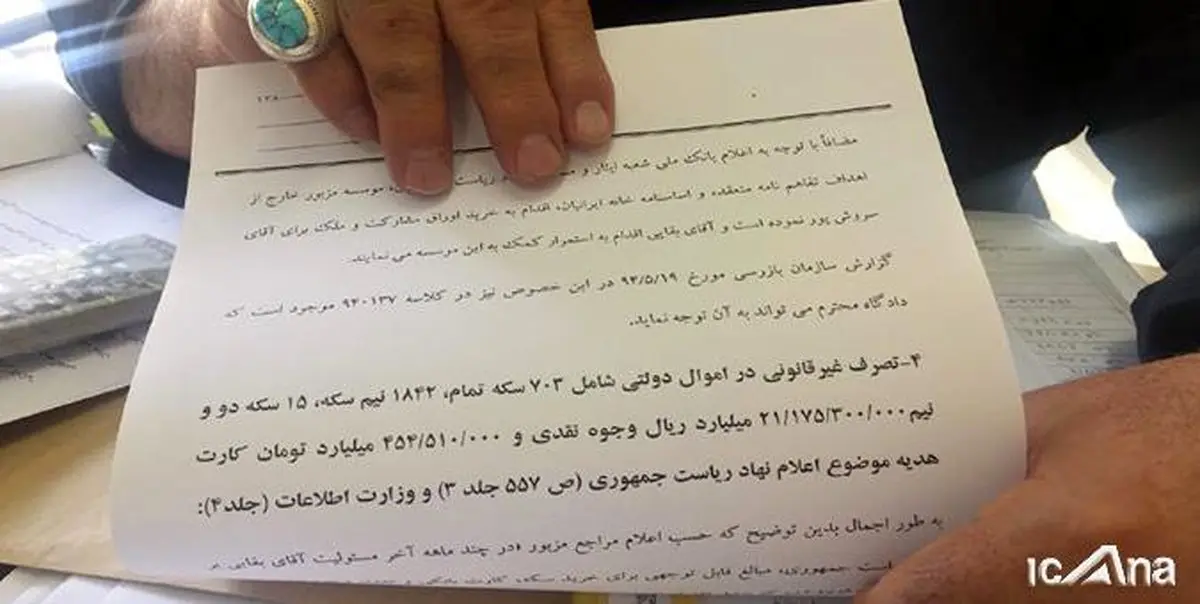 ۱۳۸
مضافاً با توجه به اعلام بانک ملی شعبه ایثار و ریاست موسسه مزبور خارج از
اهداف تفاهم نامه منعقده و اساسنامه خانه ایرانیان، اقدام به خرید اوراق مشارکت و ملک برای آقای
سروش پور نموده است و آقای بقایی اقدام به استمرار کمک به این موسسه می نمایند.
گزارش سازمان بازرسی مورخ ۹۴/۵/۱۹ در این خصوص نیز در کلاسه ۹۴۰۱۳۷ موجود است که
دادگاه محترم می تواند به آن توجه نماید.
۴-تصرف غیرقانونی در اموال دولتی شامل ۷۰۳ سکه تمام، ۱۸۴۲ نیم سکه، ۱۵ سکه دو و
نیم ۲۱/۱۷۵/۳۰۰/۰۰۰ میلیارد ریال وجوه نقدی و ۴۵۴/۵۱۰/۰۰۰ میلیارد تومان کارت
هدیه موضوع اعلام نهاد ریاست جمهوری (ص ۵۵۷ جلد ۳) و وزارت اطلاعات (جلد۴):
به طور اجمال بدین توضیح که حسب اعلام مراجع مزبور «در چند ماهه آخر مسئولیت آقای بقایی در
است جمهوری، مبالغ قابل توجهی برای خرید سکه، کارت
ICANA